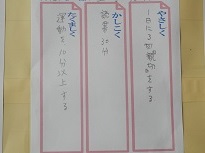 やさしく
1日に3回親切をする
かしこく
読書30分
たくましく
運動を10分以上する